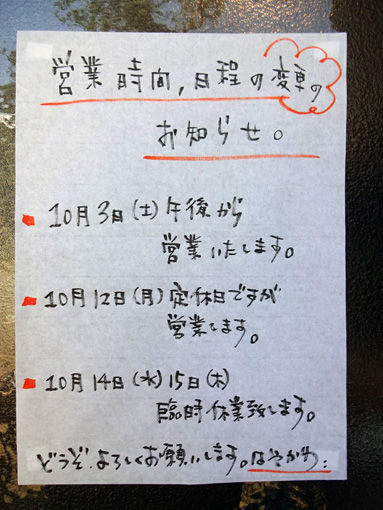 営業時間,日程の変更の
お知らせ。
10月3日(土)午後から
営業いたします。
10月12日(月)定休日ですが
営業します。
10月14日(水)15日(木)
臨時休業致します。
どうぞ.よろしくお願いします。はせがわ: